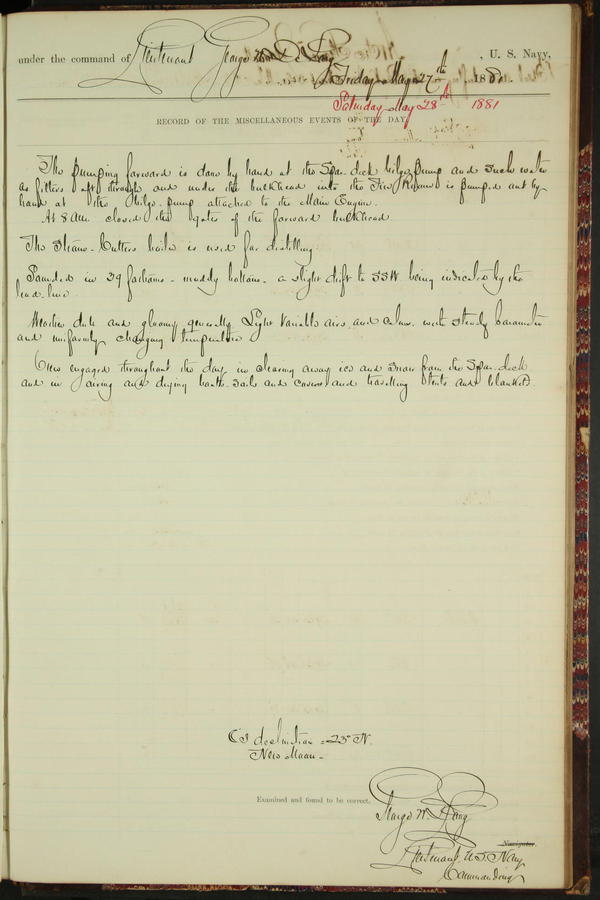 under the command of Lieutenant George W. De Long, U. S. Navy,
Friday May 27th, 188
Saturday May 28th 1881
RECORD OF THE MISCELLANEOUS EVENTS OF THE DAY
The Pumping forward is done by hand at the Spar deck bilge Pump and such water
as filters aft through and under the bulkhead into the Fire Room is pumped out by
hand at the bilge-pump attached to the Main Engine.
At 8 AM. closed the gates of the forward bulkhead
The Steam-Cutters boiler is used for distilling.
Sounded in 29 fathoms - muddy bottom - a slight drift to SSW being indicated by the
lead-line
Weather dull and gloomy generally Light Variable airs and Calms with Steady barometer
and uniformly changing temperature
Crew engaged throughout the day in clearing away ice and Snow from the Spar-deck
and in airing and drying boats-sails and covers and travelling tents and blankets.
declination = 23° N.
New Moon -
Examined and found to be correct.
George W. De Long
Navigator.
Lieutenant U.S. Navy
Commanding